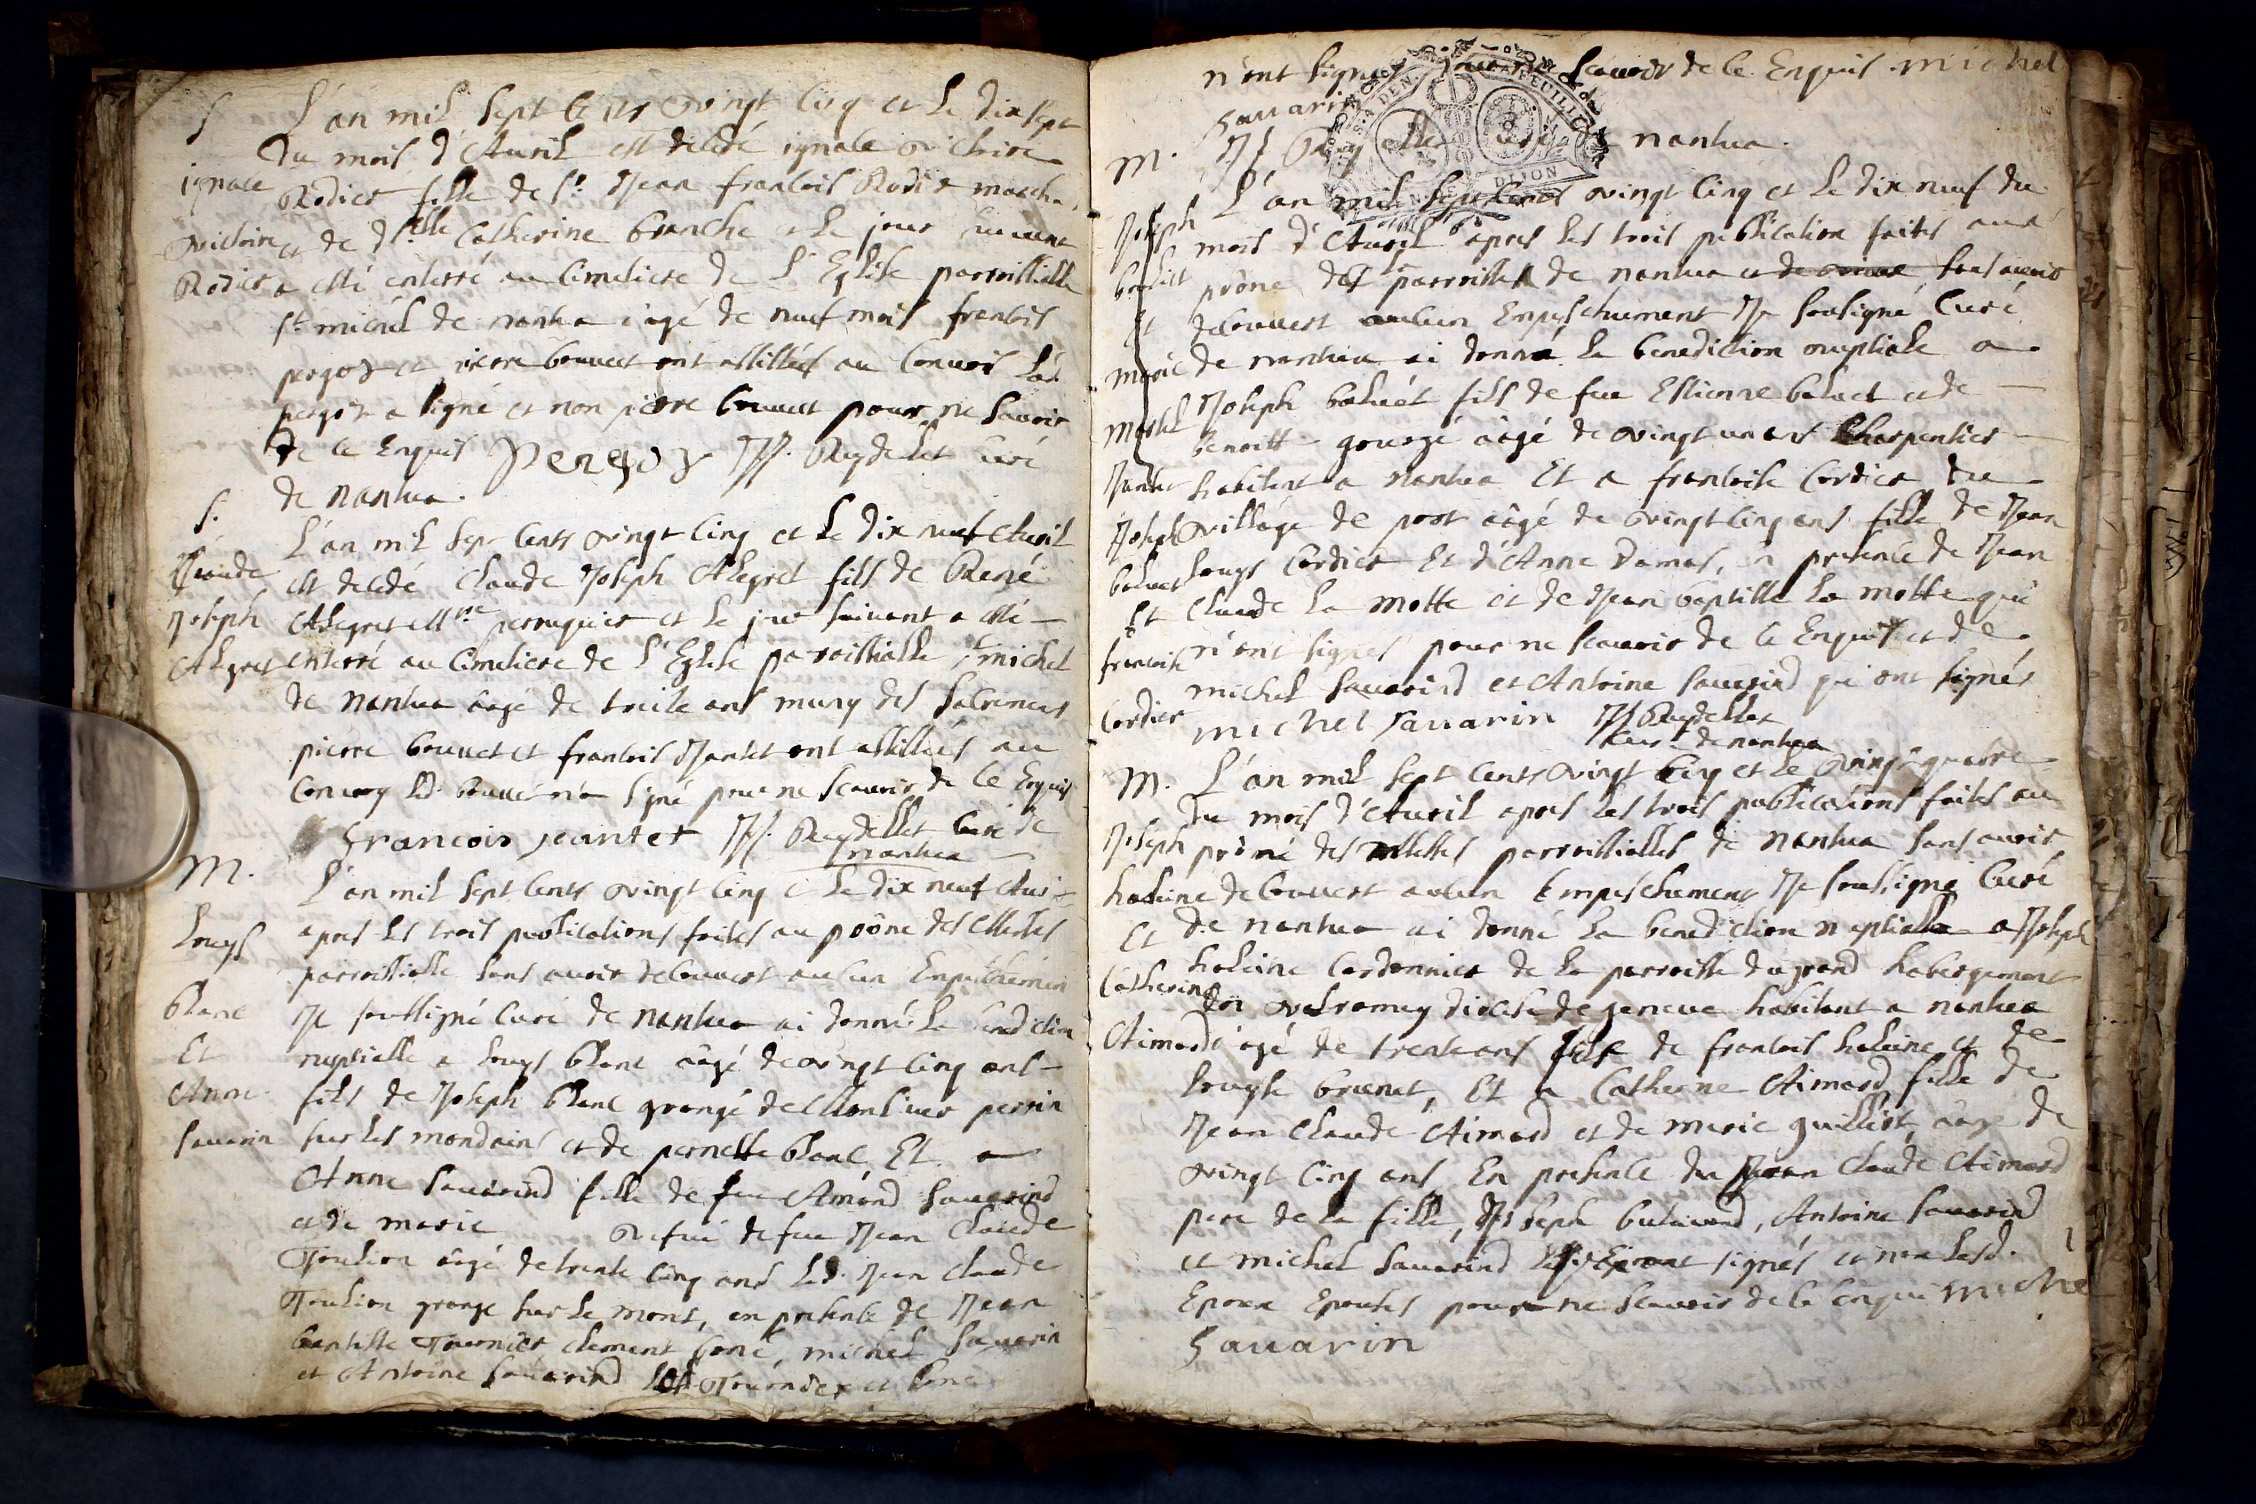 S
L'an mil Sept Cents vingt Cinq et Le dixsept
du mois d'Avril est decedé ignace victoire
ignace
Rodiet fille de Sr. Jean francois Rodiet march
victoire
et de dlle Catherine branche et le jour suivant
Rodiet
a esté enterré au Cimetiere de L'Eglise parroissialle
St michel de nantua agé de neuf mois francois
pergod et pierre bouvet ont assistés au Convois led.
pergod a signé et non pierre bouvet pour ne savoir
de ce Enquis Pergod JJ. Reydellet Curé
de nantua.
S.
L'an mil Sept Cents vingt Cinq et Le dix neuf Avril
Claude
est decedé Claude Joseph Alegret fils de René
Joseph
Alegret Mre perruquier et Le jour suivant a esté
Alegret
enterré au Cimetiere de L'Eglise parroissialle St michel
de nantua aagé de treise ans muny des Sacremens
pierre bouvet et francois Jantet ont assistés au
Convoy led. bouvet n'a signé pour ne scavoir de ce Enquis
francois jeantet JJ. Reydellet Curé de
nantua
M.
L'an mil Sept Cents vingt Cinq et Le dix neuf Avril
Louys
apres Les trois publications faites au prône des Messes
parroissialle sans avoir decouvert aucun Empechement
blanc
Je soussigné Curé de nantua ai donné La benediction
Et
nuptialle a Louys blanc aagé de vingt Cinq ans
Anne
fils de Joseph blanc grangé de Monsieur perrin
Savarin
sur les mondains et de pernette blanc, Et a
Anne Savarind fille de feu Amand Savarind
et de marie vefve de feu Jean Claude
Toulion aagé de trente Cinq ans Led. Jean Claude
Toulion grange sur Le mont, en presence de Jean
baptiste Tournier Clement bone, michel Savarin
et Antoine Savarind Led. Tournier et bone
n'ont signés pour ne Scavoir de ce Enquis michel
savarin
JJ Reydellet curé de nantua.
M.
L'an mil Sept Cents vingt Cinq et Le dix neuf du
Joseph
mois d'Avril apres Les trois publication faites aux
boluet
prône des parroisses de nantua et de sans avoir
Et
decouvert aucun Empechement Je sousigné Curé
marie
de nantua ai donné La benediction nuptiale a
Joseph boluet fils de feu Estienne boluet et de
benoitt gourgé aagé de vingt un ans Charpentier
habitant a nantua Et a francoise Cordier du
Joseph
village de port aagé de vingt Cinq ans fille de Jean
boluet
Louys Cordier Et d'Anne Damas, en presence de Jean
Et
Claude La motte et de Jean baptiste La motte qui
francoise
n'ont signés pour ne scavoir de ce Enquis et de
michel Savarind et Antoine Savarind qui ont signés
Cordier
michel savarin JJ Reydellet
Curé de nantua
M.
L'an mil Sept Cents vingt Cinq et Le vingt quatre
du mois d'Avril apres Les trois publications faites au
Joseph
prône des Messes parroissialles de nantua sans avoir
haleine
decouvert aucun Empechement Je soussigné Curé
Et
de nantua ai donné La benediction nuptialle a Joseph
haleine Cordonnier de La parroisse du grand habergement
Catherine
en valromey diocese de geneve habitant a nantua
Aimard
aagé de trente ans fils de francois haleine et de
Louyse brunet, Et a Catherine Aimard fille de
Jean Claude Aimard et de marie guilliot, aagé de
vingt Cinq ans En presence du Jean Claude Aimard
pere de La fille, Joseph butavand, Antoine Savarind
et michel Savarind signés et non Lesd.
Epoux Epouses pour ne scavoir de ce Enquis michel
savarin